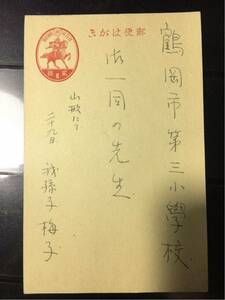 きがは便郵
鶴岡市第三小學校
御一同の先生
山形にて
二十九日
我孫子梅子